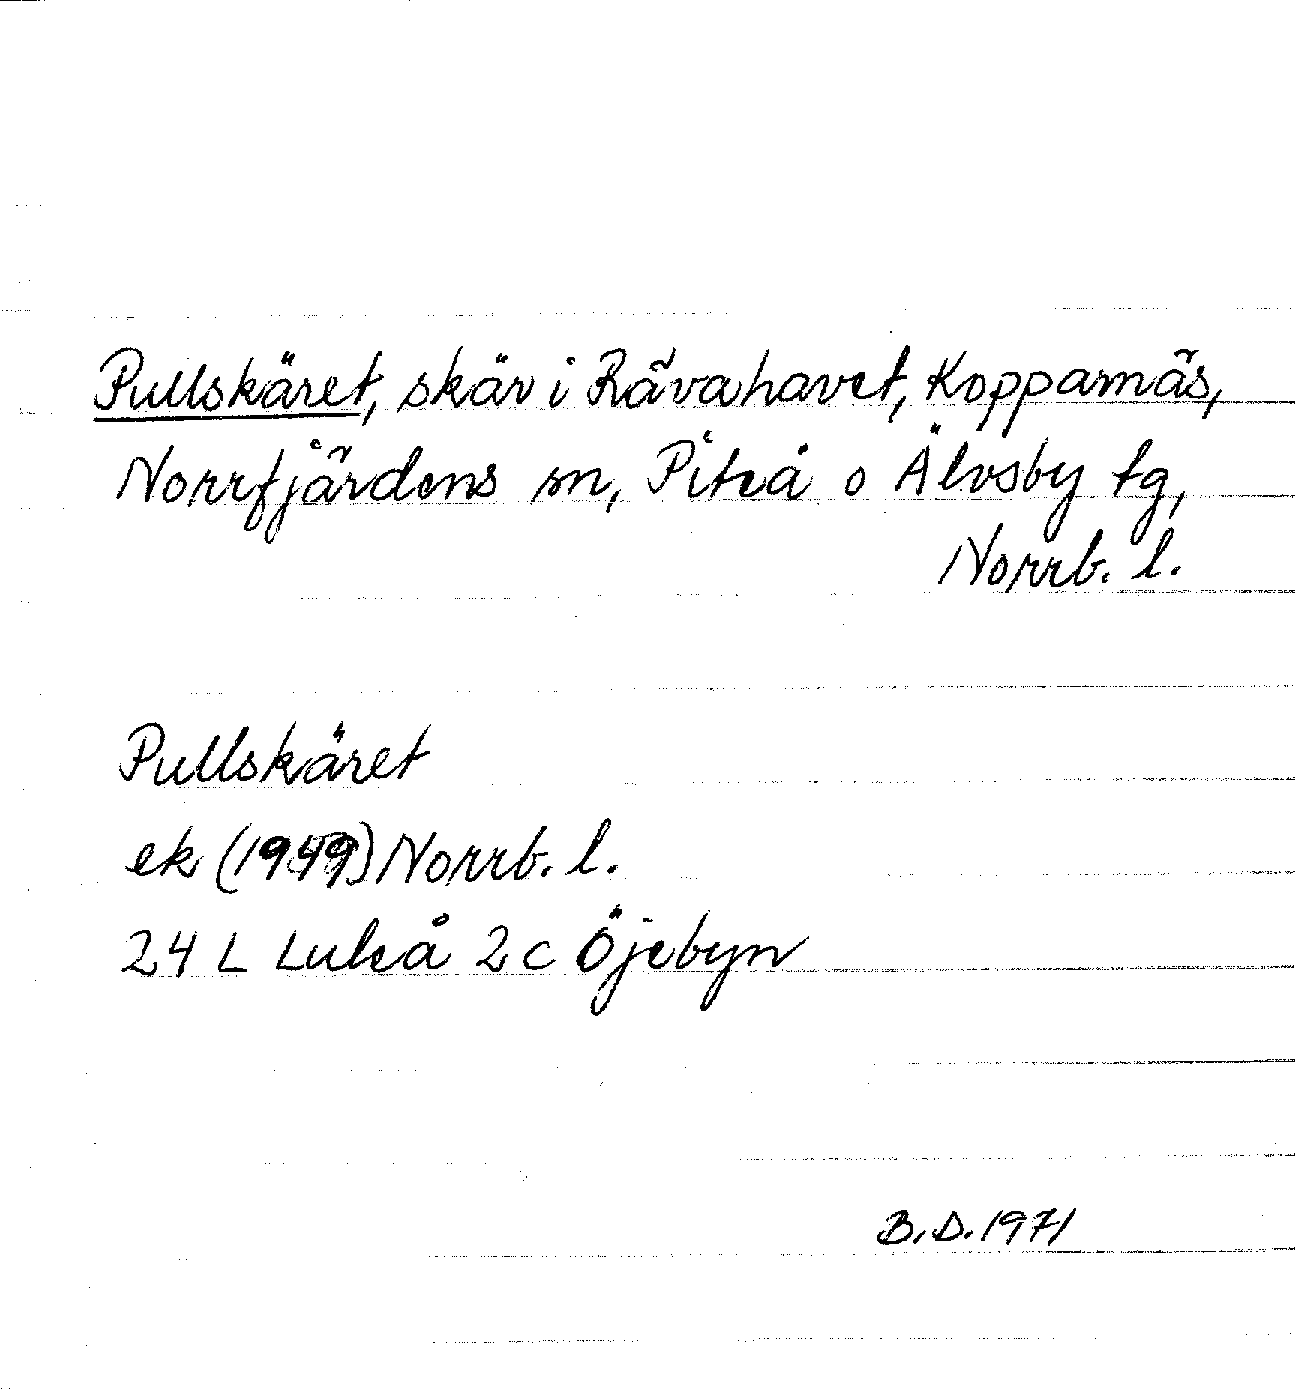 Pullskäret, skär i Rävahavet, Kopparnäs,
Norrfjärdens sn, Piteå o Älvsby tg,
Norrb. l.
Pullskäret
ek (1949) Norrb. l.
24 L Luleå 2 c Öjebyn
B.D. 1971